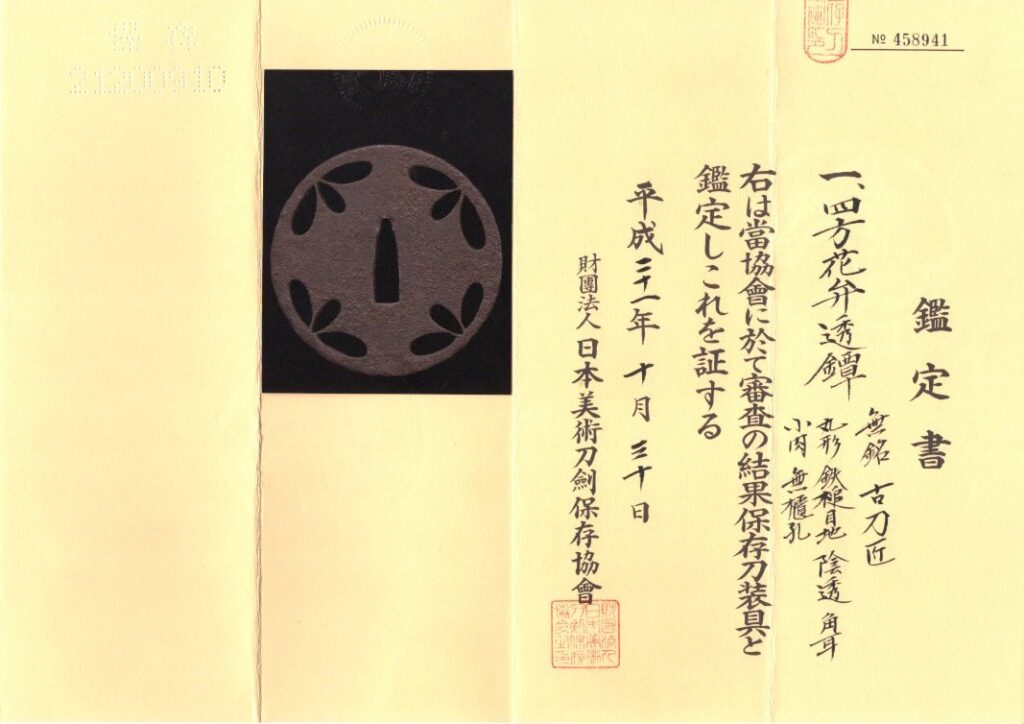 № 458941
鑑定書
一、四方花弁透鐔
無銘 古刀匠
丸形 鉄槌目地 陰透 角耳
小肉 無櫃孔
右は當協會に於て審査の結果保存刀装具と
鑑定しこれを証する
平成二十一年 十月 三十日
財團法人日本美術刀劍保存協會
21200910